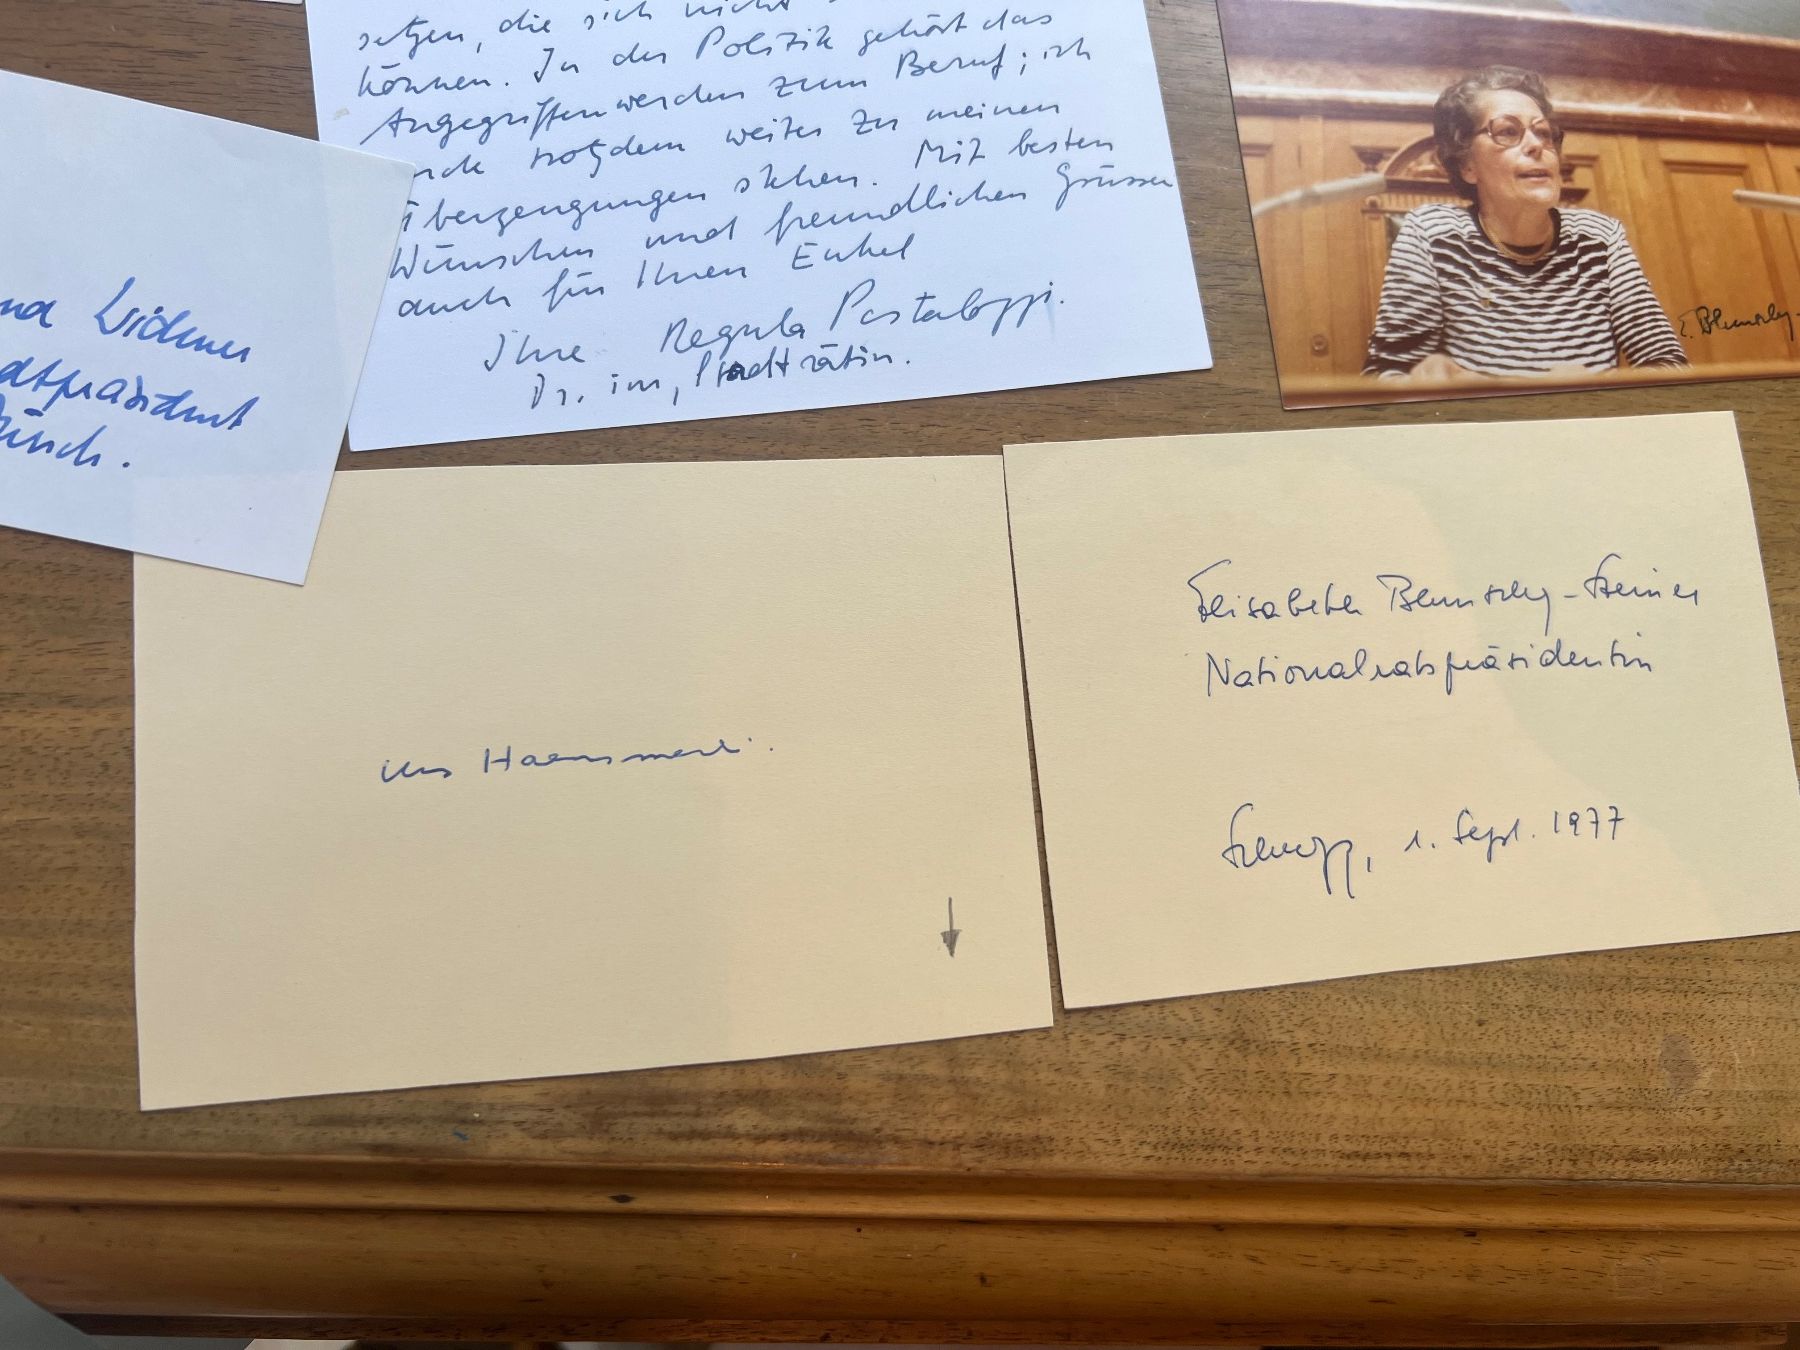 setzen, die sich nicht
können. In der Politik gehört das
Angegriffenwerden zum Beruf; ich
trotzdem weiter zu meinen
Überzeugungen stehen. Mit besten
Wünschen und freundlichen Grüssen
auch für Ihren Enkel
Ihre Regula Pestalozzi.
Dr. iur, Stadträtin.
Widmer
E. Blunschy-
Urs
Elisabeth Blunschy-Steiner
Nationalratspräsidentin
Schwyz, 1. Sept. 1977